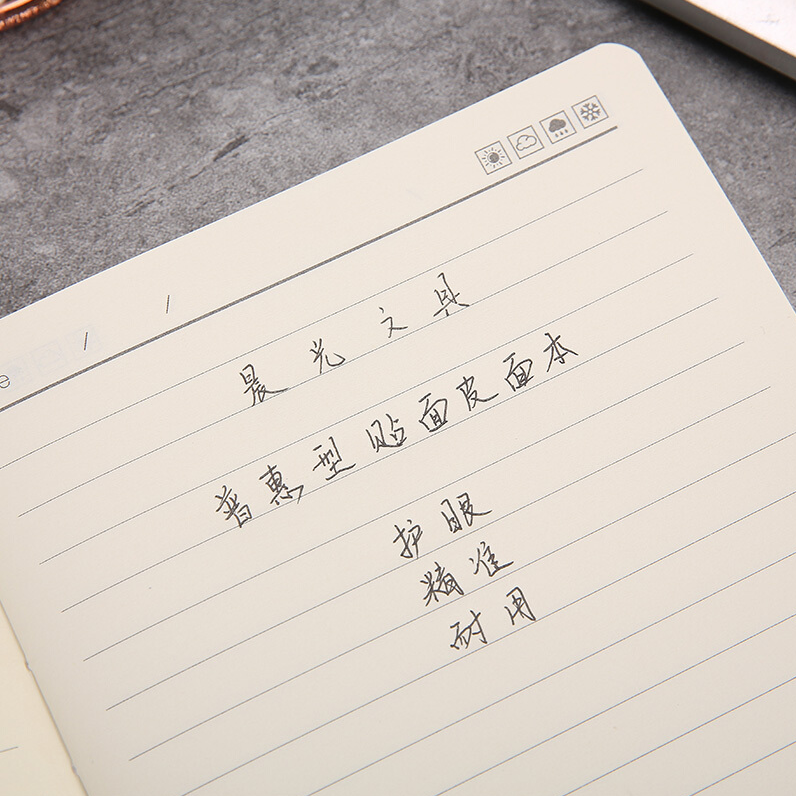 e / /
晨光文具
普惠型贴面皮面本
护眼
精准
耐用